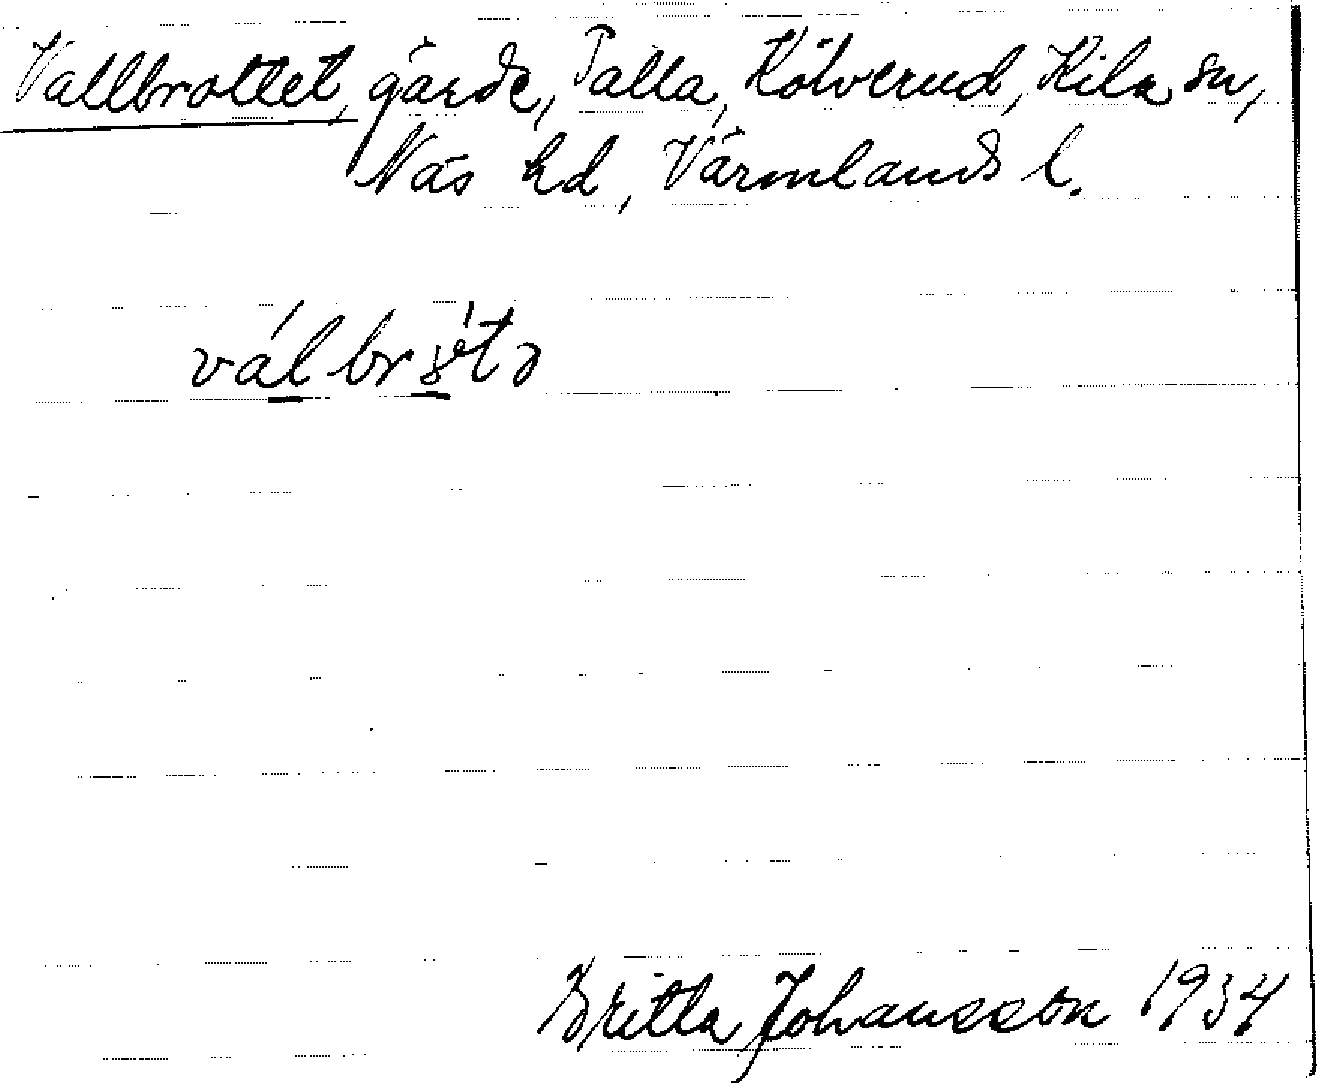 Vallbrottet, gärde, Talla, Kölverud, Kila sn,
Näs hd, Värmlands l.
Britta Johansson 1934